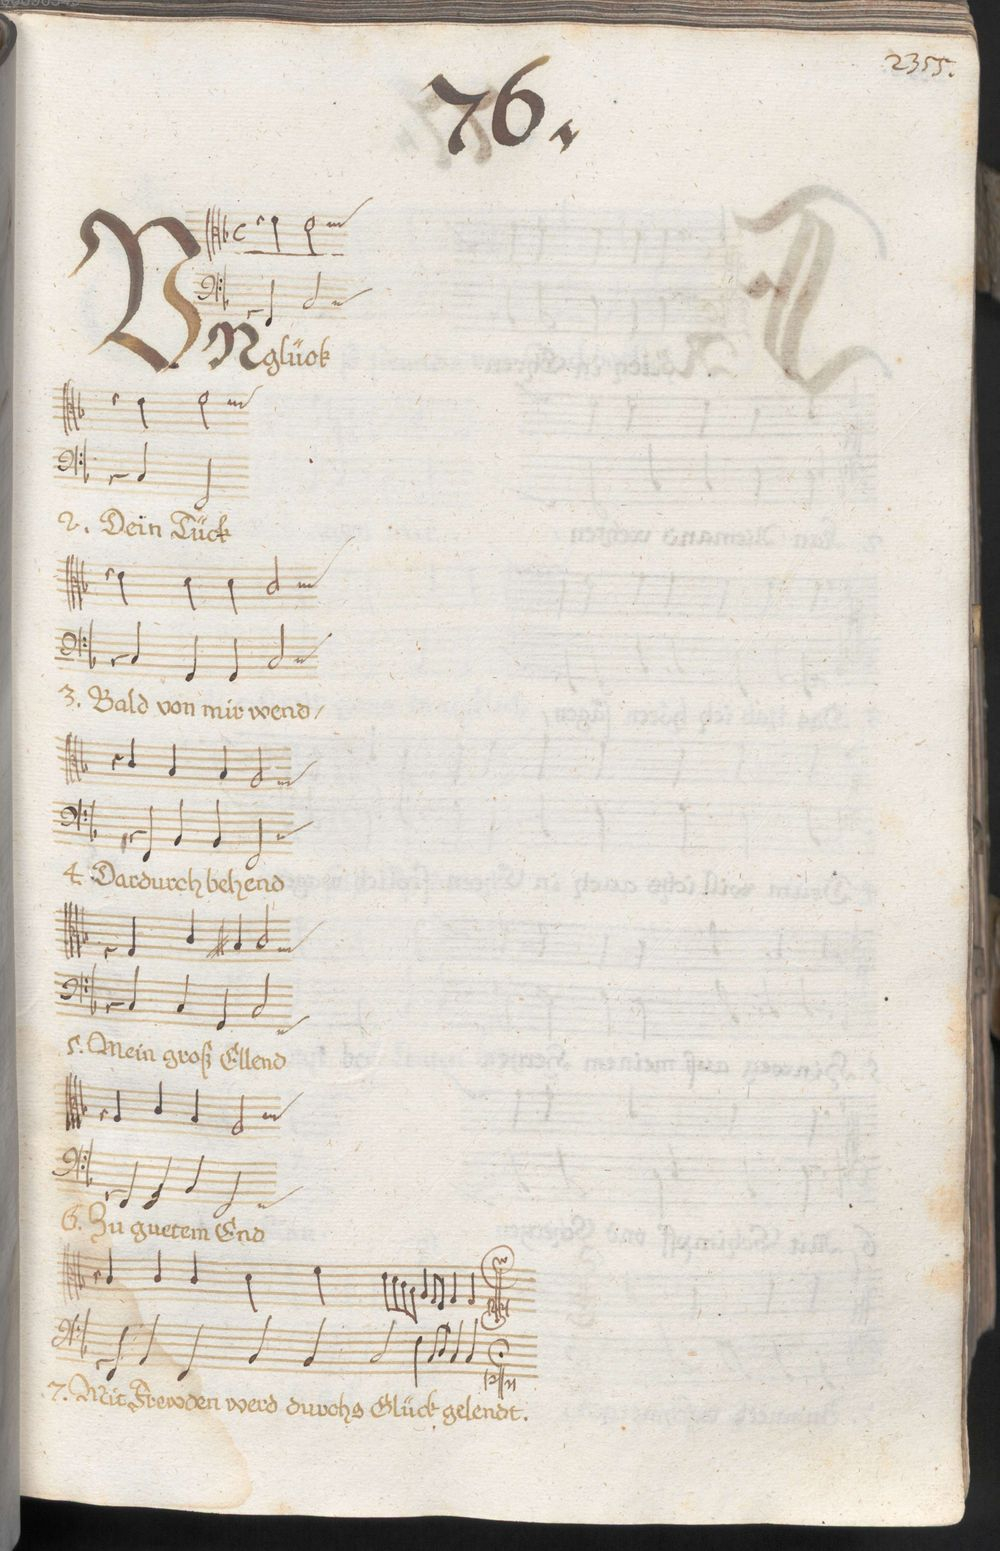 2355.
76.
VNglück
2. Dein Tück
3. Bald von mir wend/
4. Dardurch behend
5. Mein groß Ellend
6. Zu guetem End
7. Mit Frewden werd durchs Glück gelendt.